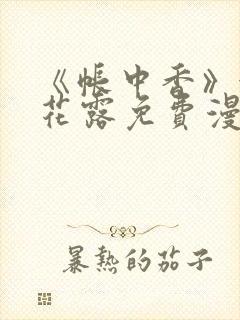 《帐中香》
花露免费漫
暴熱的茄子